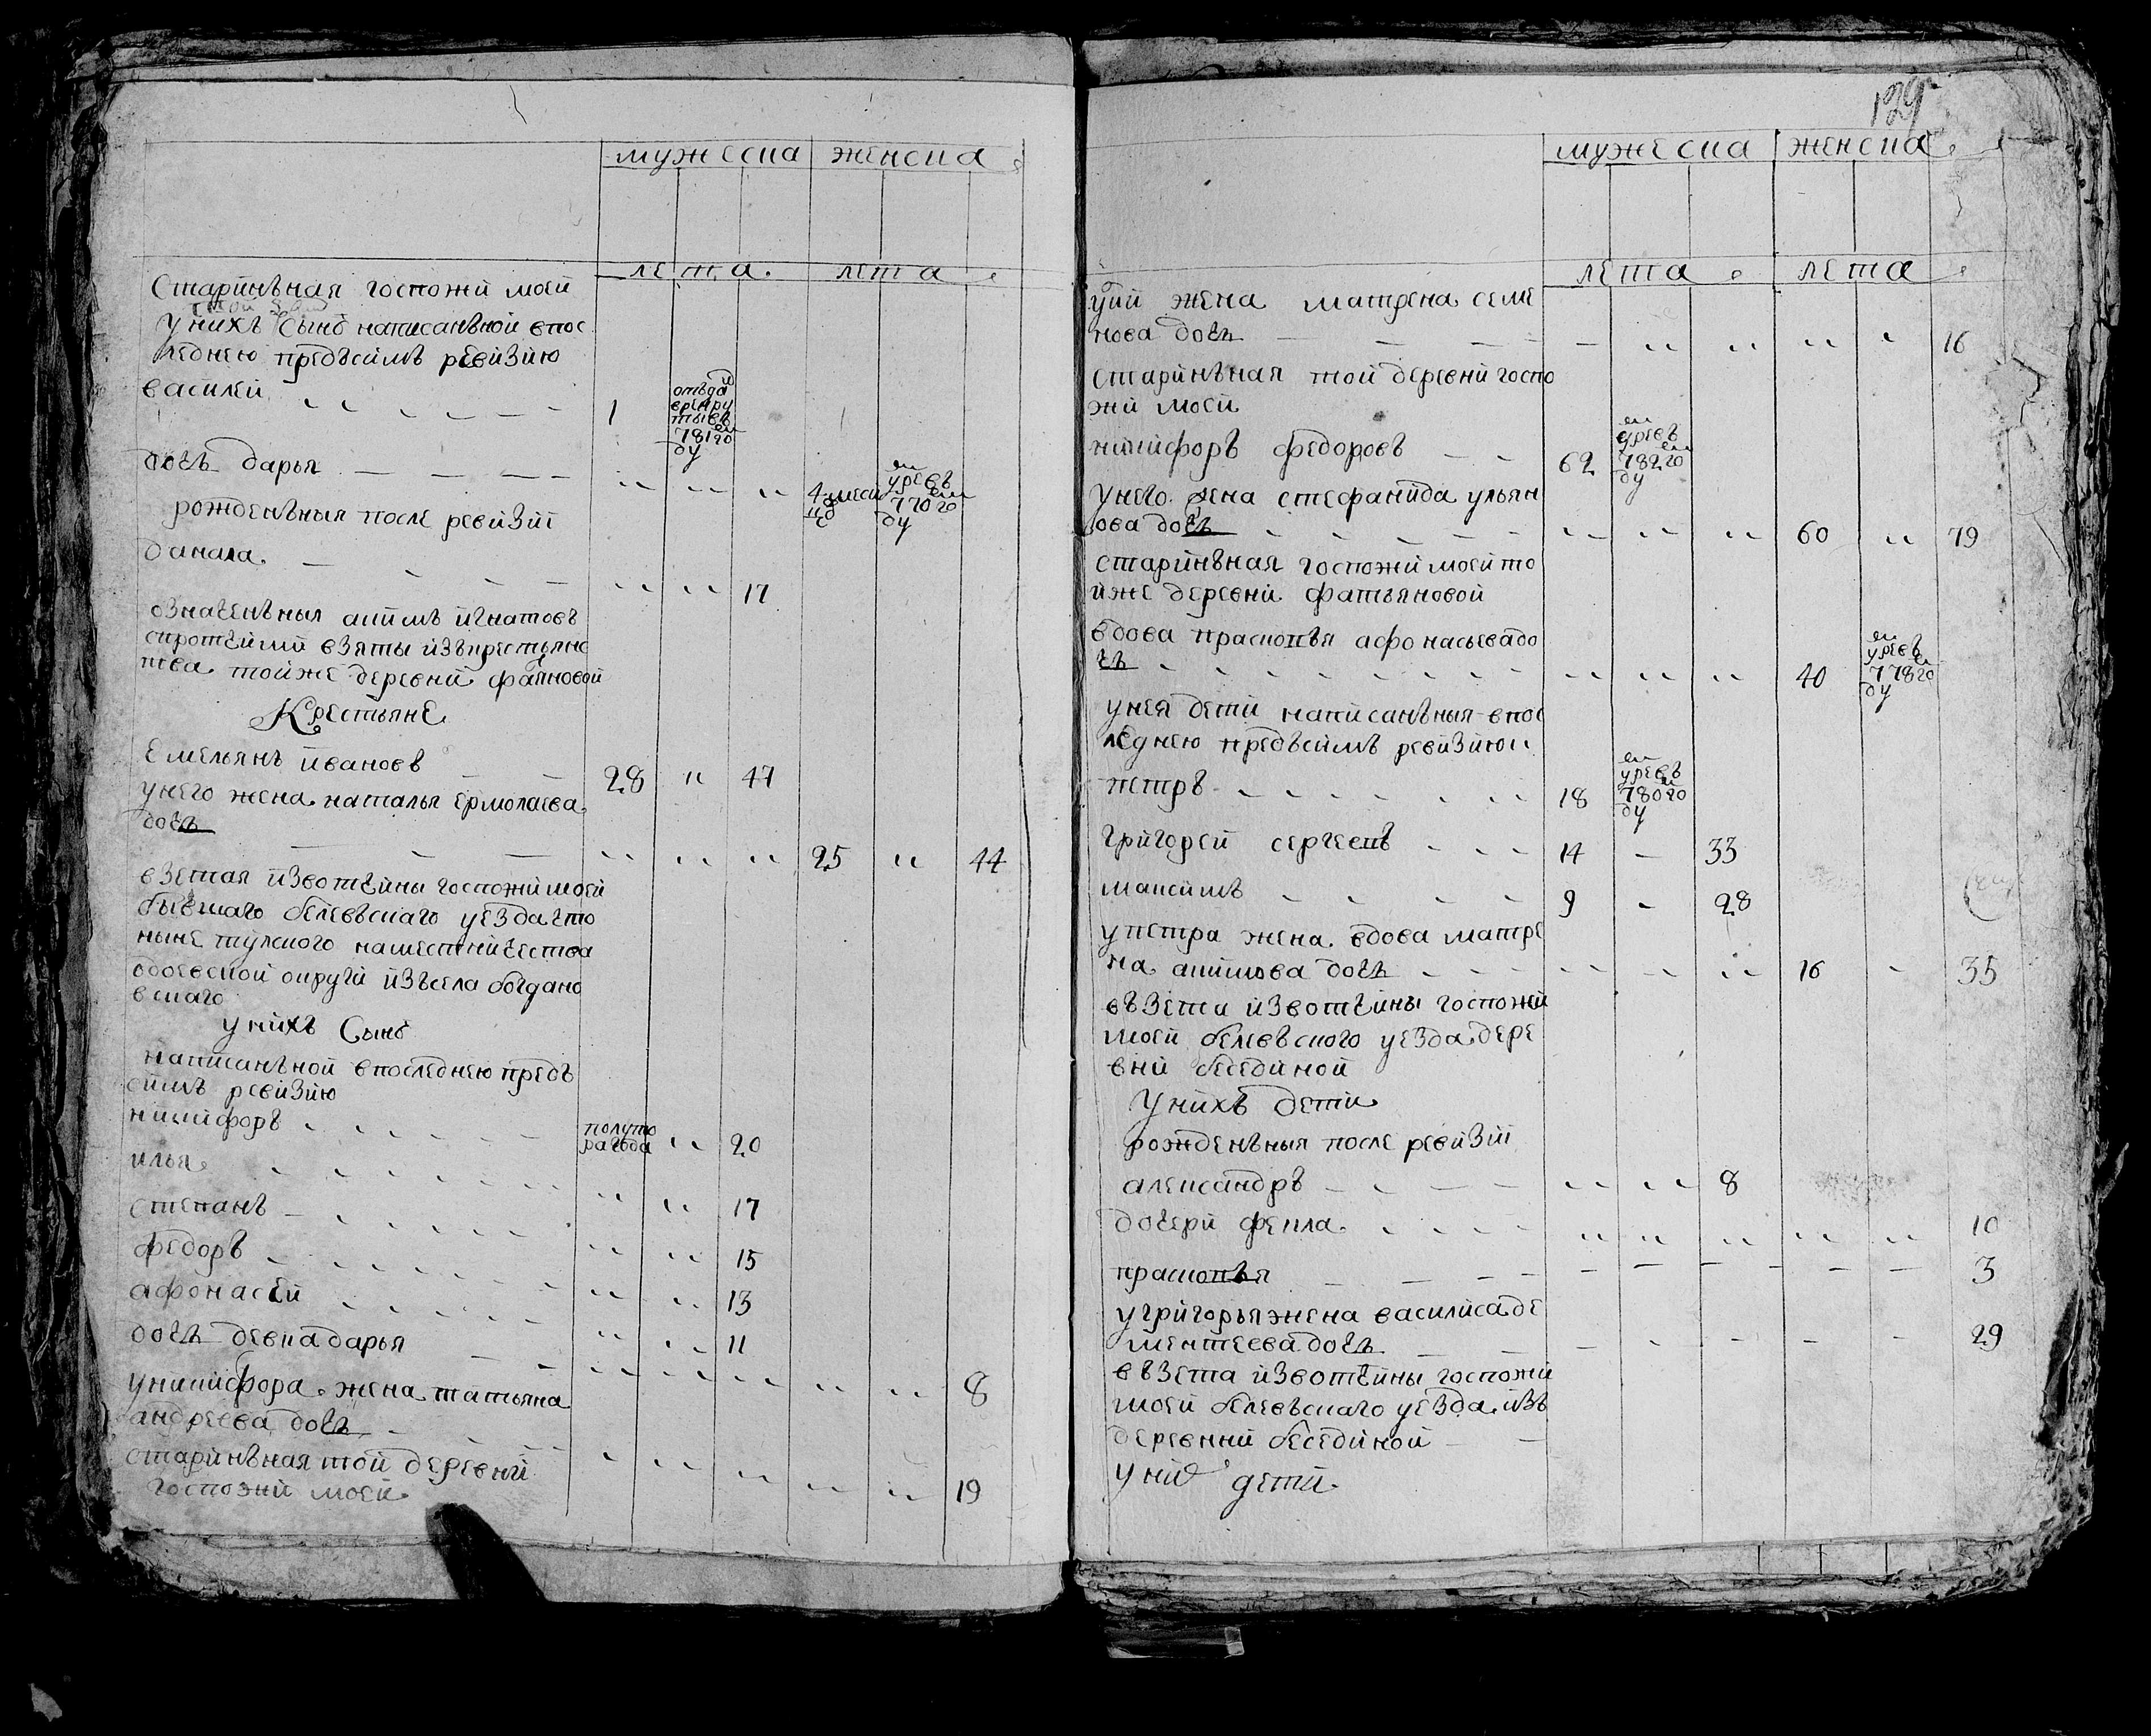 мужеска женска
лета лета
старинъная госпожи моей
у нихъ сынъ написанъной впос
леднею предъсимъ ревизию
василей 1 отъда
врекру
ты въ
781 го
ду
дочь дарья 4 меся
ца умре въ
770 го
ду
рожденъныя после ревизии
данила 17
означенъныя акимъ игнатовъ
спротчими взяты изъкрестьянс
тва тойже деревни фаяновой
Крестьяне
емельянъ ивановъ 28 47
унего жена наталья ермолаева
дочь 25 44
взетая извотчины госпожи моей
бывшаго белевъскаго уезда что
ныне тулского наместничества
одоевской округи изъсела богдано
вскаго
у нихъ сынъ
написанъной впоследнею предъ
симъ ревизию
никифоръ полуто
рагода 20
илья 17
степанъ 15
федоръ 13
афонасей 11
дочь девка дарья 8
уникифора жена татьяна
андреева дочь 19
старинъная той деревни
госпожи моей
129
мужеска женска
лета лета
жена матрена семе
нова дочь 16
старинъная той деревни госпо
жи моей
никифоръ федоровъ 62 умре въ
782 го
ду
унего жена стефанида ульян
ова дочь 60 79
старинъная госпожи моей то
йже деревни фатьяновой
вдова прасковья афонасьева до
чь 40 умре въ
778 го
ду
унея дети написанъныя впос
леднею предъсимъ ревизию
петръ 18 умре въ
780 го
ду
григорей сергеевъ 14 33
максимъ 9 28
упетра жена вдова матре
на акимова дочь 16 35
въ зета извотчины госпожи
моей белевъского уезда дере
вни беседи́ной
у нихъ дети
рожденъныя после ревизии
александръ 8
дочери фекла 10
прасковья 3
угригорья жена василиса де
ментеева дочь 29
въ зета извотчины госпожи
моей белевъскаго уезда изъ
деревни беседи́ной
у них дети